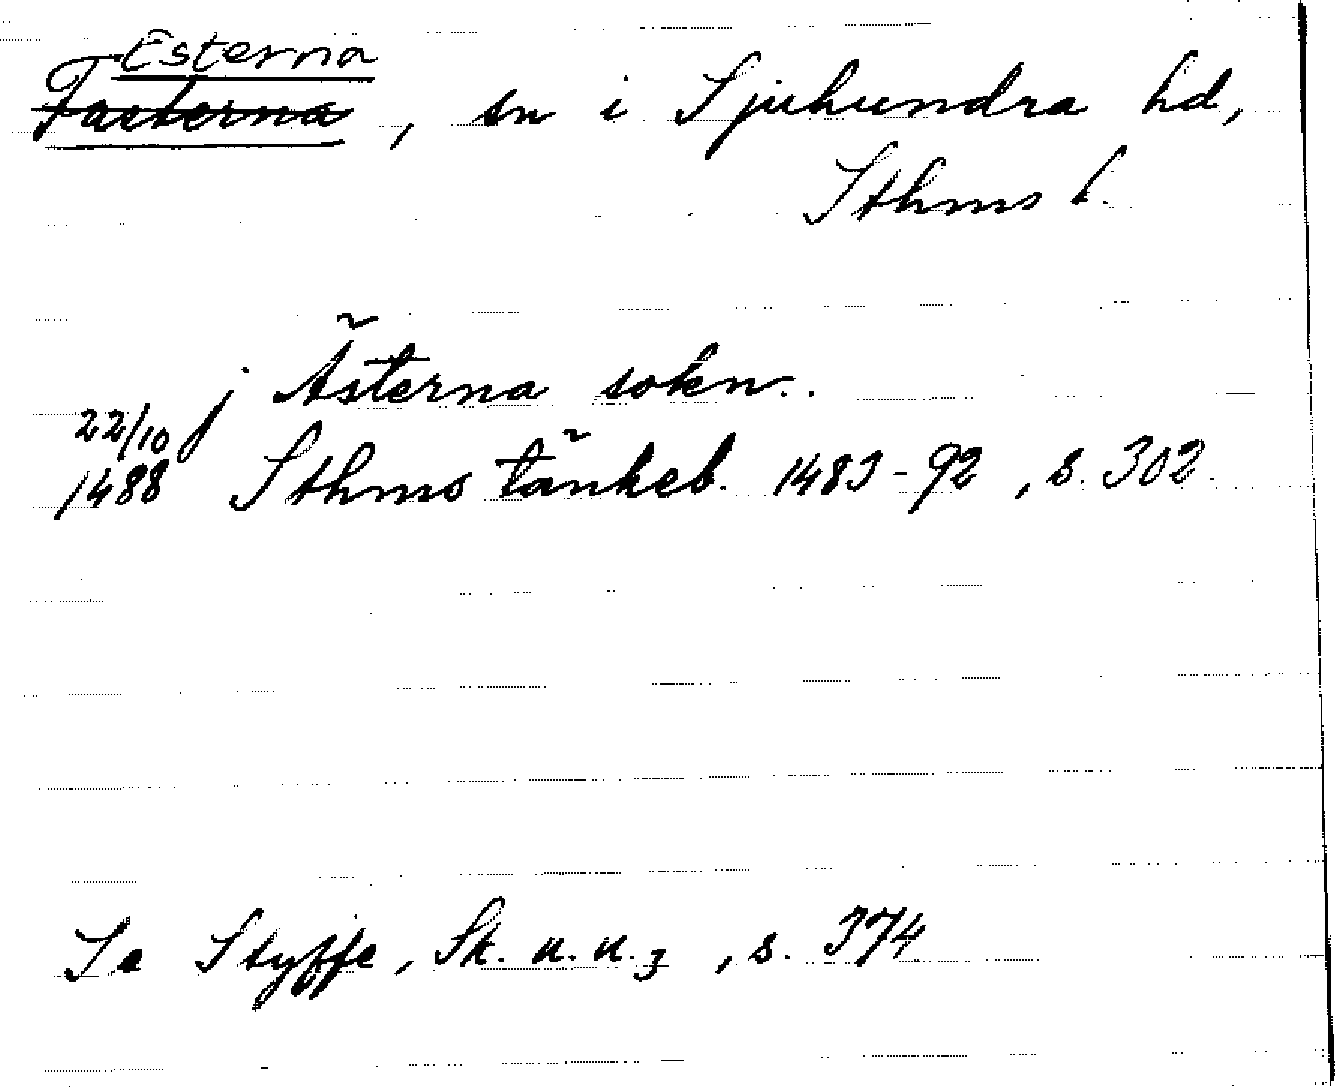 Esterna
Fasterna, sn i Sjuhundra hd,
Sthms l.
j Ästerna sokn..
22/10
1488 Sthms tänkeb. 1483-92, s. 302.
Se Styffe, Sk. u. u. 3, s. 374